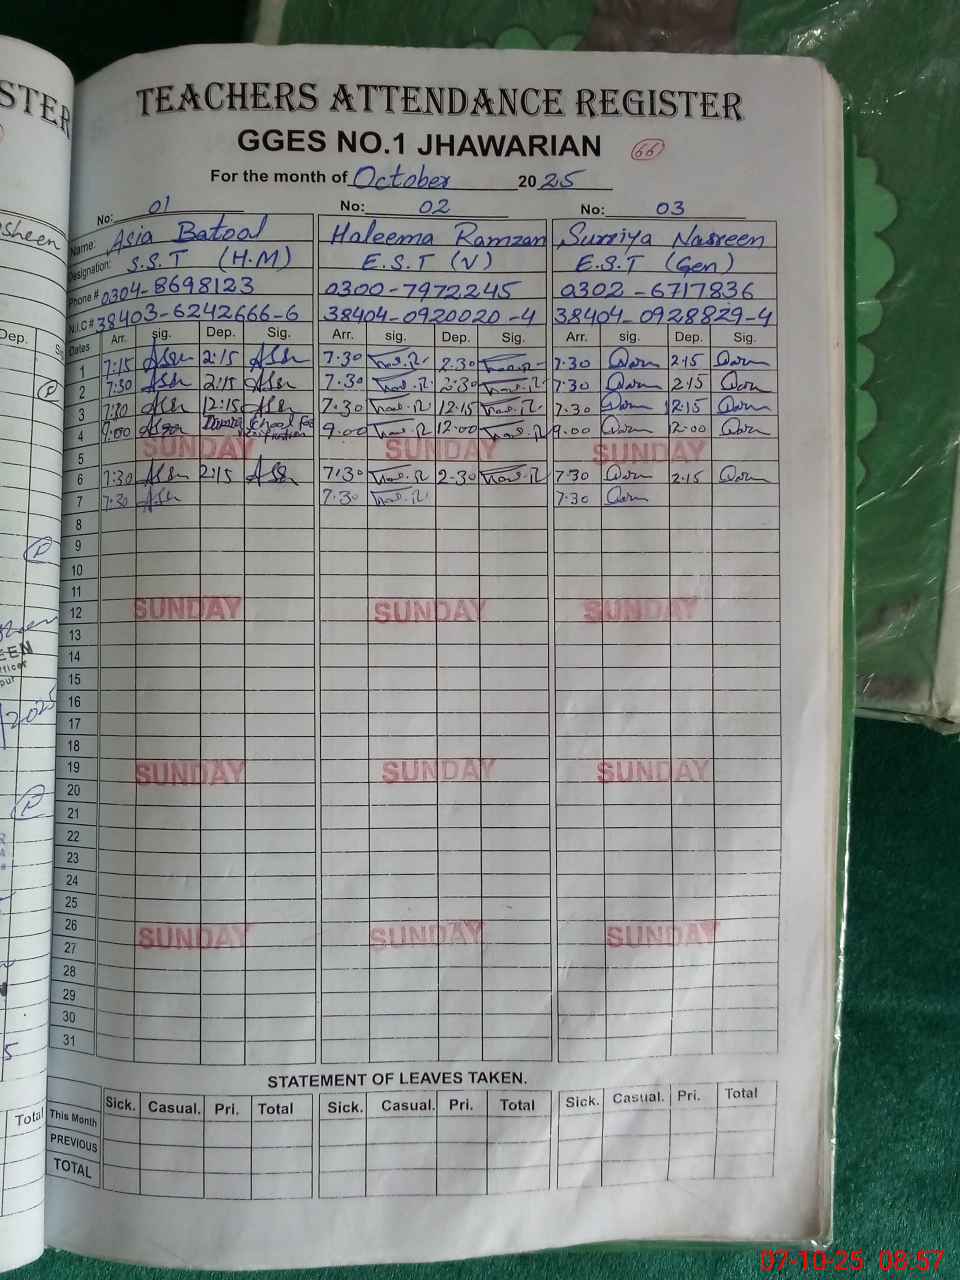 STER
TEACHERS ATTENDANCE REGISTER
GGES NO.1 JHAWARIAN
66
For the month of October 2025
No: 01 No: 02 No: 03
Name: Asia Batool Haleema Ramzan Surriya Nasreen
Designation: S.S.T (H.M) E.S.T (V) E.S.T (Gen)
Phone # 0304-8698123 0300-7972245 0302-6717836
N.I.C # 38403-6242666-6 38404-0920020-4 38404-0928829-4
Dates Arr. sig. Dep. Sig. Arr. sig. Dep. Sig. Arr. sig. Dep. Sig.
1 7:15 2:15 7:30 2:30 7:30 2:15
2 7:30 2:15 7:30 2:30 7:30 2:15
3 7:30 12:15 7:30 12:15 7:30 12:15
4 9:00 9:00 12:00 9:00 12:00
5 SUNDAY SUNDAY SUNDAY
6 7:30 2:15 7:30 2:30 7:30 2:15
7 7:30 7:30 7:30
8
9
10
11
12 SUNDAY SUNDAY SUNDAY
13
14
15
16
17
18
19 SUNDAY SUNDAY SUNDAY
20
21
22
23
24
25
26 SUNDAY SUNDAY SUNDAY
27
28
29
30
31
STATEMENT OF LEAVES TAKEN.
Sick. Casual. Pri. Total Sick. Casual. Pri. Total Sick. Casual. Pri. Total
This Month
PREVIOUS
TOTAL
Dep.
Total
07-10-25 08:57